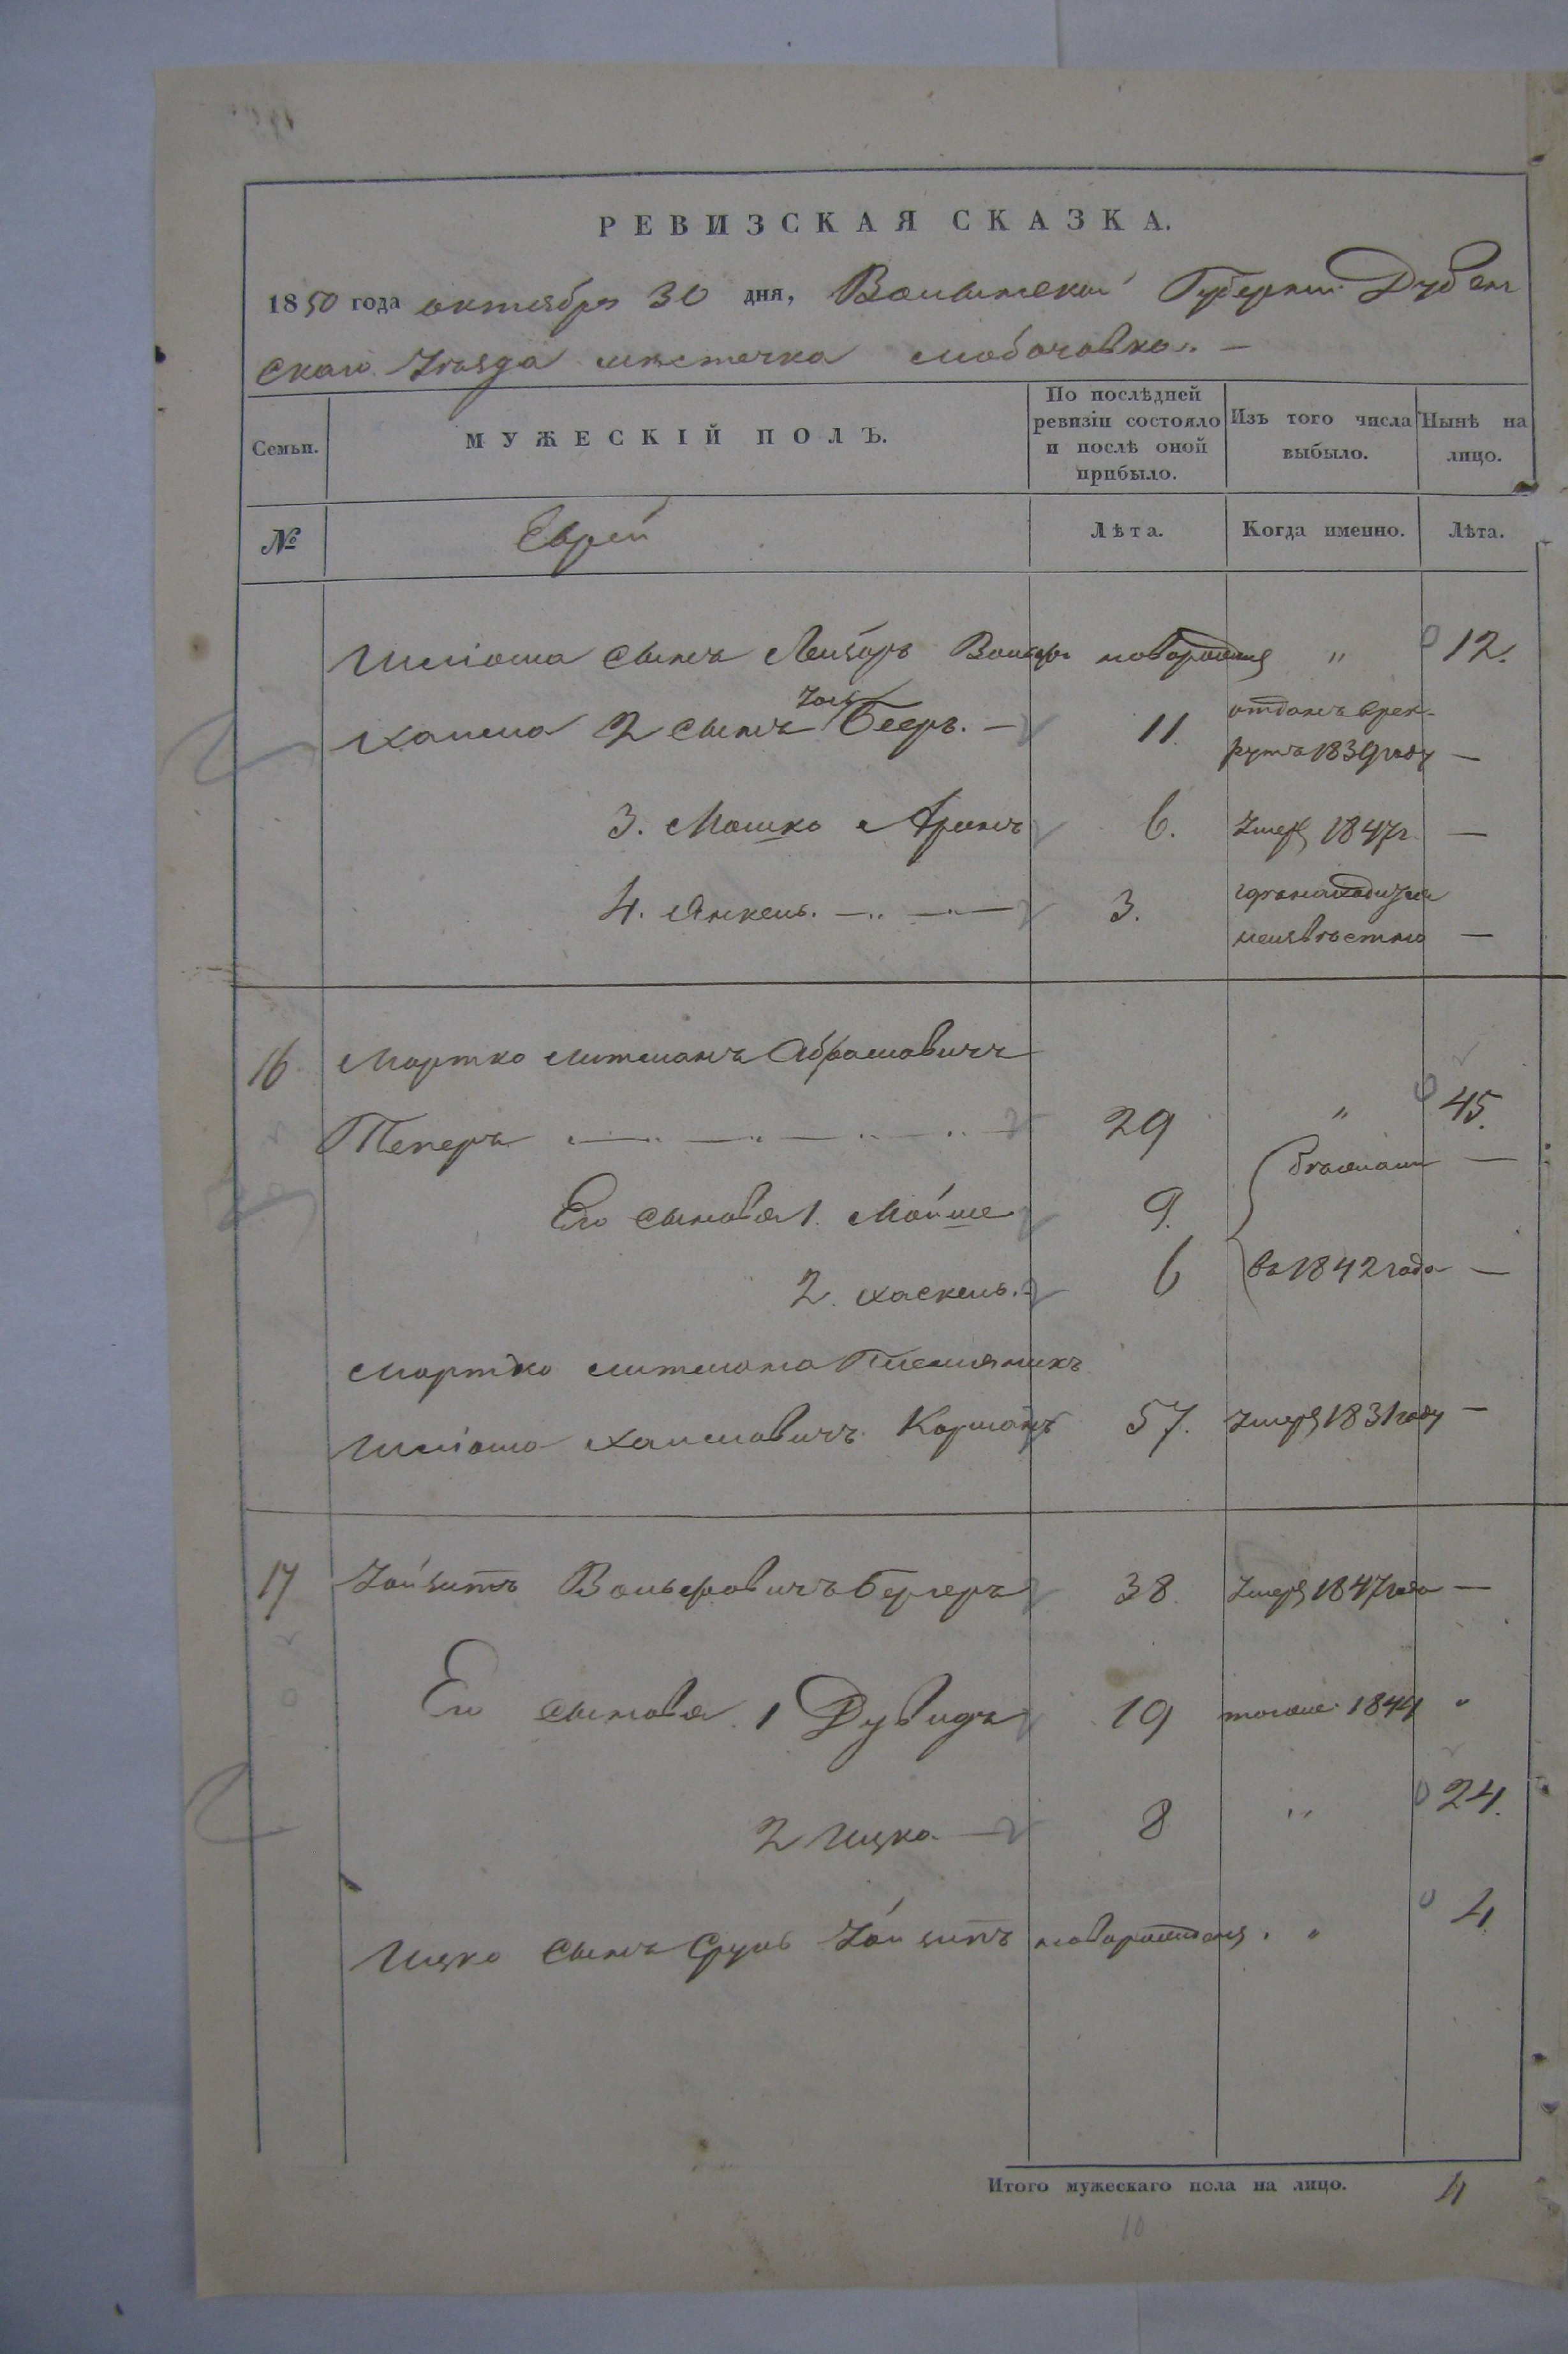 РЕВИЗСКАЯ СКАЗКА.
1850 года октября 30 дня, Волынской Губернии Дубен
скаго Уезда местечка
Семьи.
МУЖЕСКІЙ ПОЛЪ.
По послѣдней
ревизіи состояло
и послѣ оной
прибыло.
Изъ того числа
выбыло.
Нынѣ на
лицо.
№
Еврей
Лѣта.
Когда именно.
Лѣта.
Шліома сынъ Лейборъ новорожден " 12.
Хаима 2 сынъ Беръ. — 11. отданъ врек-
рутъ 1839 году —
3. Мошко Аронъ 6. Умеръ 1847 г. —
4. Янкель. — 3.
неизвѣстно —
16 Мортко Литманъ Абрамовичъ
Теперъ 29 " 45.
Его сыновья 1. Мойше 9. бежали —
2. Хаскель. 6 въ 1842 года —
Мортко Литмана Племянникъ
Шліома Хаимовичъ Корманъ 57. Умеръ 1831 году —
17 Вольфовичъ Бергеръ 38. Умеръ 1847 года —
Его сыновья 1 Дувидъ 19 тоже 1844 "
2 Ицко — 8 " 24.
Ицко сынъ Сруль новорожден. " 4
Итого мужескаго пола на лицо. 4
10